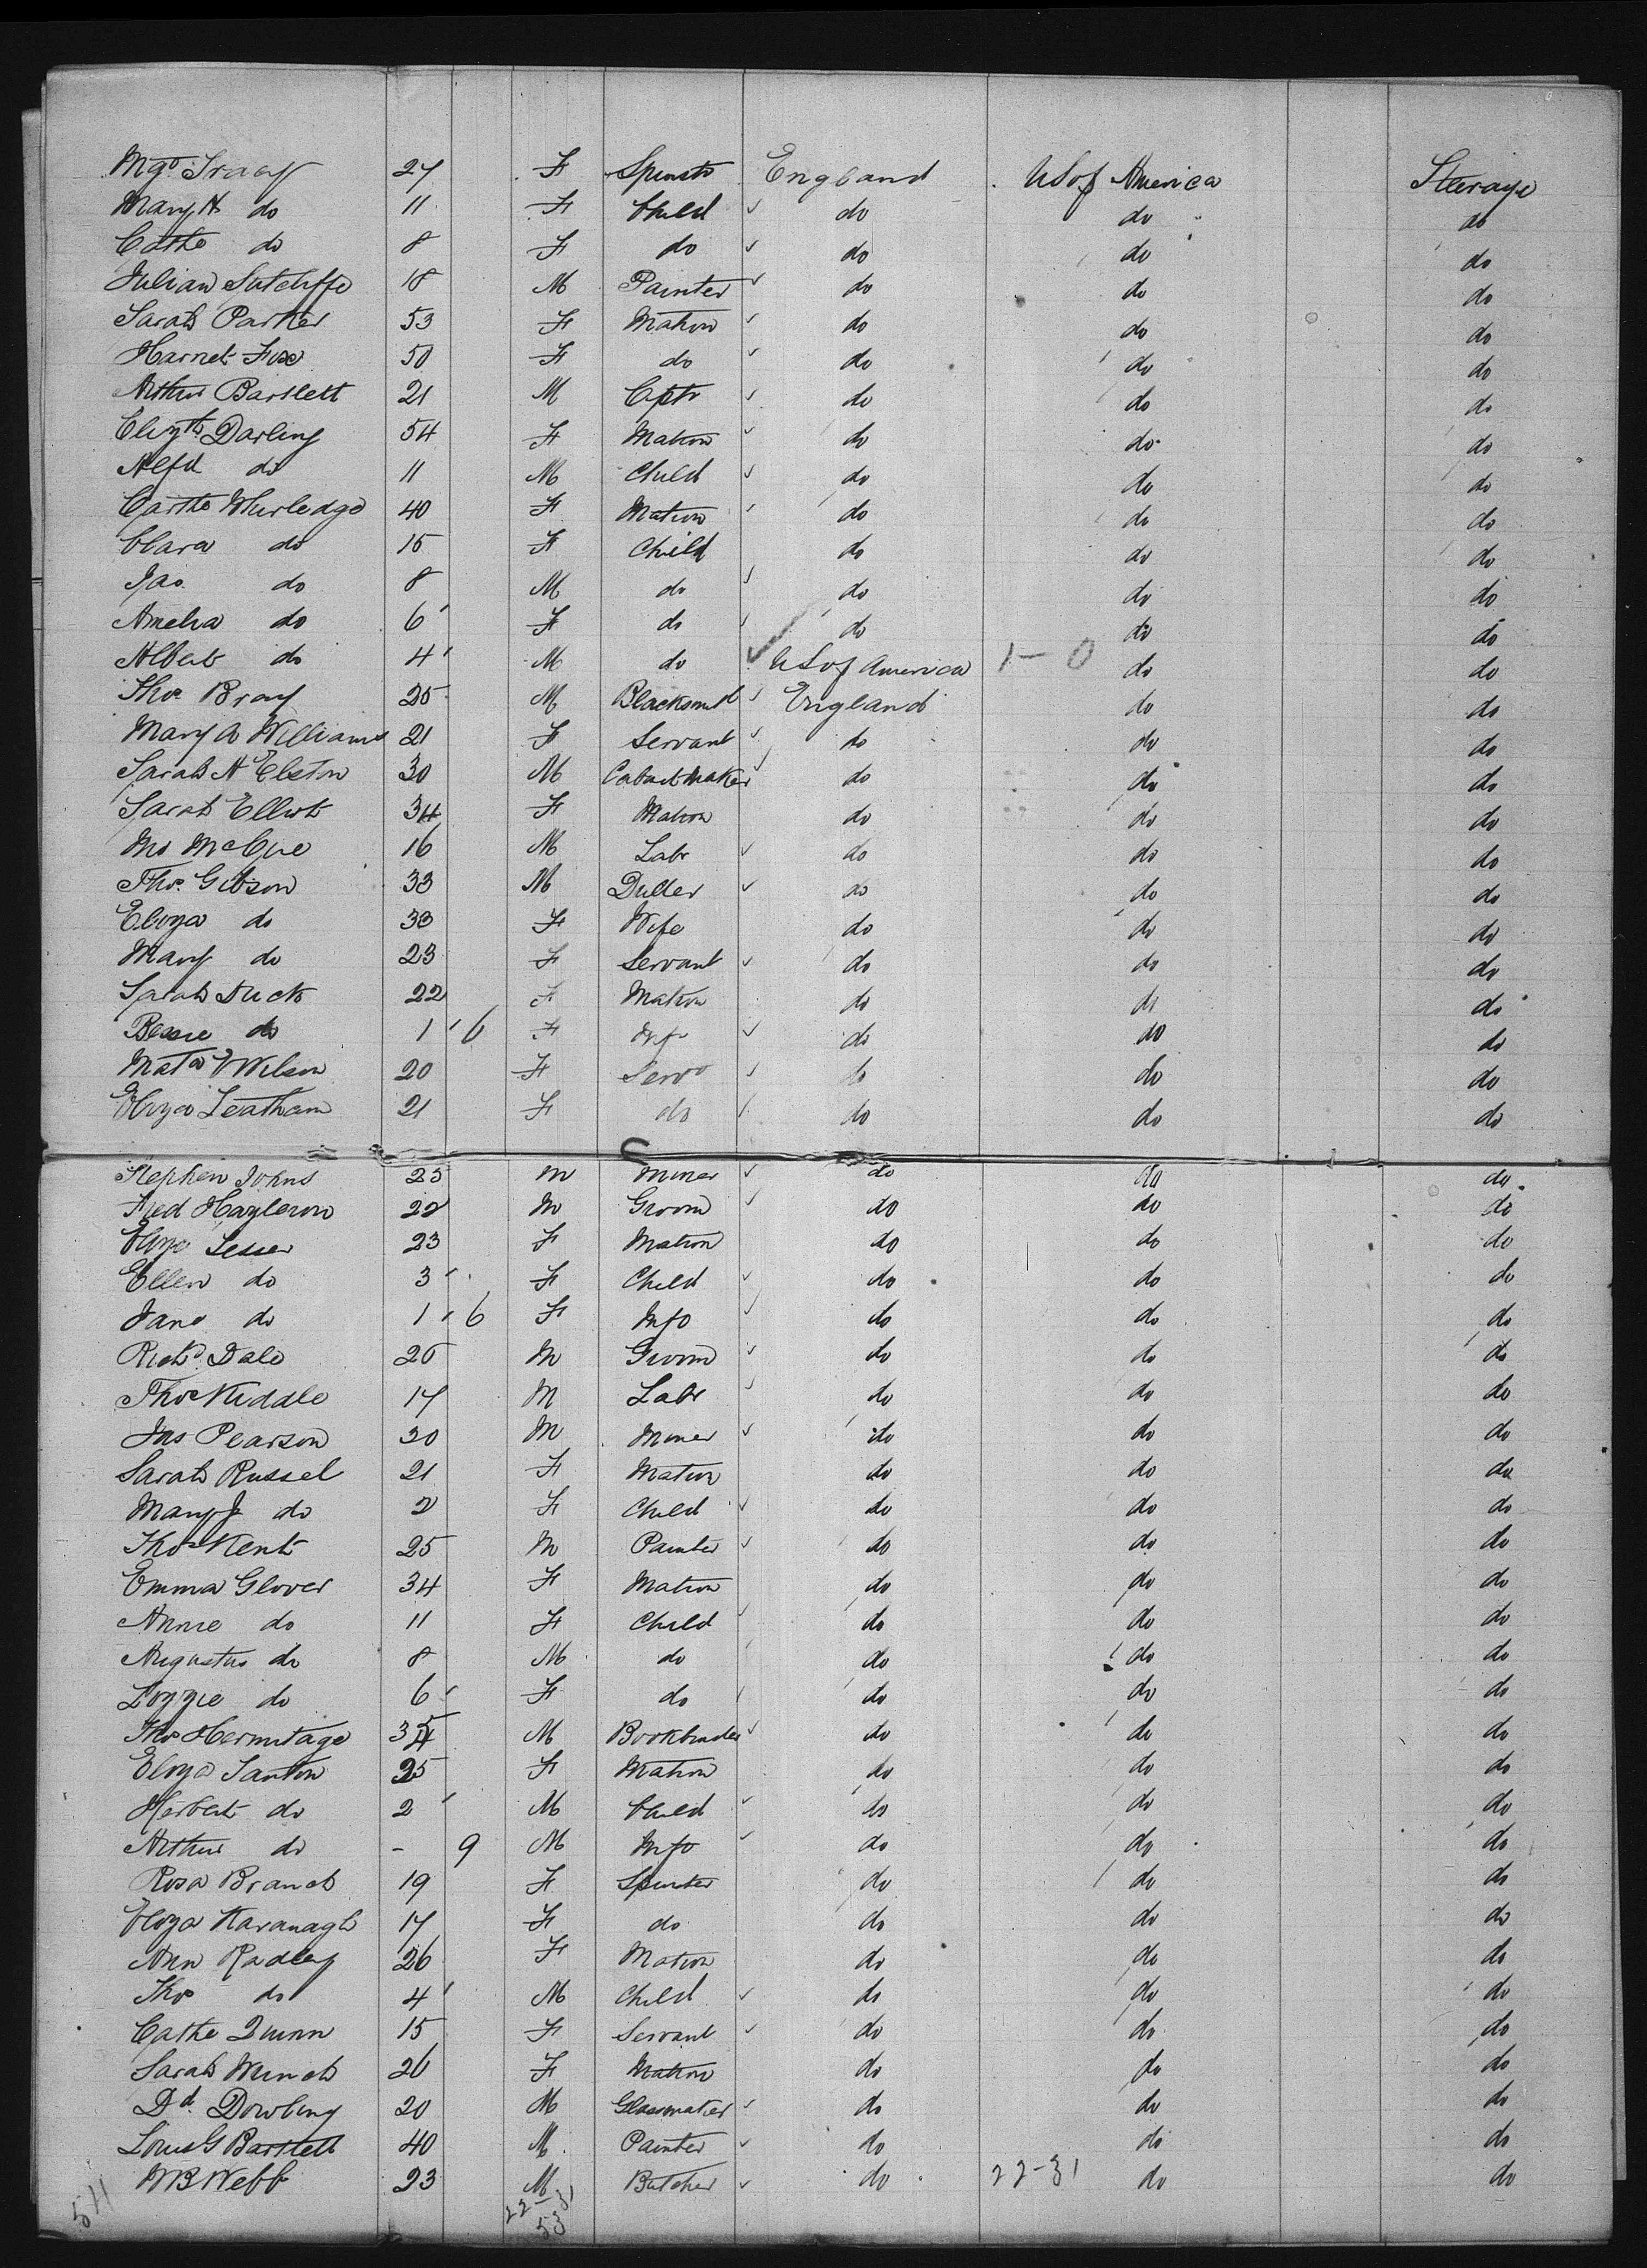 Mgt Tracy 27 F Spinstr England US of America Steerage
Mary A do 11 F Child do do do
Cathe do 8 F do do do do
Julian Sutcliffe 18 M Painter do do do
Sarah Parker 53 F Matron do do do
Harriet Fox 50 F do do do do
Arthur Bartlett 21 M Cptr do do do
Elizth Darling 54 F Matron do do do
Alfd do 11 M Child do do do
Cathe Whurledge 40 F Matron do do do
Clara do 15 F Child do do do
Jas do 8 M do do do do
Amelia do 6 F do do do do
Albert do 4 M do US of America 1 - 0 do do
Thos Bray 25 M Blacksmith England do do
Mary A Williams 21 F Servant do do do
Sarah A Elston 30 M Cabinet Maker do do do
Sarah Elliot 34 F Matron do do do
Jno McCue 16 M Labr do do do
Thos Gibson 33 M do do do
Eliza do 33 F Wife do do do
Mary do 23 F Servant do do do
Sarah Duck 22 F Matron do do do
Bessie do 1 6 F Inft do do do
Wilson 20 F Servt do do do
Eliza Leatham 21 F do do do do
Stephen Johns 25 M Miner do do do
Fred 22 M Groom do do do
Eliza Lesser 23 F Matron do do do
Ellen do 3 F Child do do do
Jane do 1 6 F Inft do do do
Richd Dale 26 M Groom do do do
Thos Kiddle 17 M Labr do do do
Jas Pearson 30 M Miner do do do
Sarah Russel 21 F Matron do do do
Mary J do 2 F Child do do do
Thos Kent 25 M Painter do do do
Emma Glover 34 F Matron do do do
Annie do 11 F Child do do do
Augustus do 8 M do do do do
Lizzie do 6 F do do do do
Thos Hermitage M Bookbinder do do do
Eliza Santon 25 F Matron do do do
Herbert do 2 M Child do do do
Arthur do - 9 M Inft do do do
Rosa Branch 19 F Spinster do do do
Eliza Kavanagh 17 F do do do do
Ann Radley 26 F Matron do do do
Thos do 4 M Child do do do
Cathe Quinn 15 F Servant do do do
Sarah Winch 26 F Matron do do do
Dd Dowling 20 M Glassmaker do do do
Louis G Bartlett 40 M Painter do do do
WB Webb 23 M Butcher do 22-31 do do
22-31
53